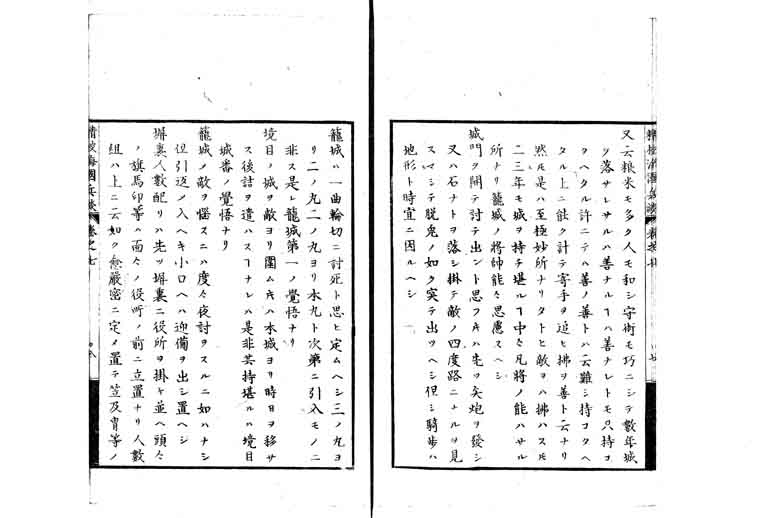 又云粮米モ多ク人モ和シ守術モ巧ニシテ數年城
ヲ落サレサルハ善ナルヿハ善ナレトモ只持コ
タヘタル許ニテハ善ノ善トハ云難シ持コタヘ
タル上ニ能ク計テ寄手ヲ追ヒ拂ヲ善ト云ナリ
然𪜈是ハ至極妙所ナリタトヒ敵ヲハ拂ハス𪜈
二三年モ城ヲ持チ堪ルヿ中々凡將ノ能ハサル
所ナリ籠城ノ將帥能々思慮スヘシ
城門ヲ開テ討テ出ント思フ𪜈ハ先ツ矢炮ヲ發シ
又ハ石ナトヲ落シ掛テ敵ノ四度路ニナルヲ見
スマシテ脱兎ノ如ク突テ出ツヘシ但シ騎歩ハ
地形ト時宜ニ因ルヘシ
精校海國兵談 卷之七
籠城ハ一曲輪切ニ討死ト思ヒ定ムヘシ三ノ九ヨ
リ二ノ九二ノ九ヨリ本九ト次第ニ引入モノニ
非ス是レ籠城第一ノ覺悟ナリ
境目ノ城ヲ敵ヨリ圍ム𪜈ハ本城ヨリ時日ヲ移サ
ス後詰ヲ遣ハスヿナレハ是非其持堪ルハ境目
城番ノ覺悟ナリ
籠城ノ敵ヲ惱スニハ度々夜討ヲスルニ如ハナシ
但引返ノ入ヘキ小口ヘハ迎備ヲ出シ置ヘシ
塀裏人數配リハ先ツ塀裏ニ役所ヲ掛ケ並ヘ頭々
ノ旗馬印等ハ面々ノ役所ノ前ニ立置ナリ人數
組ハ上ニ云如ク愈嚴密ニ定メ置テ笠及冑等ノ